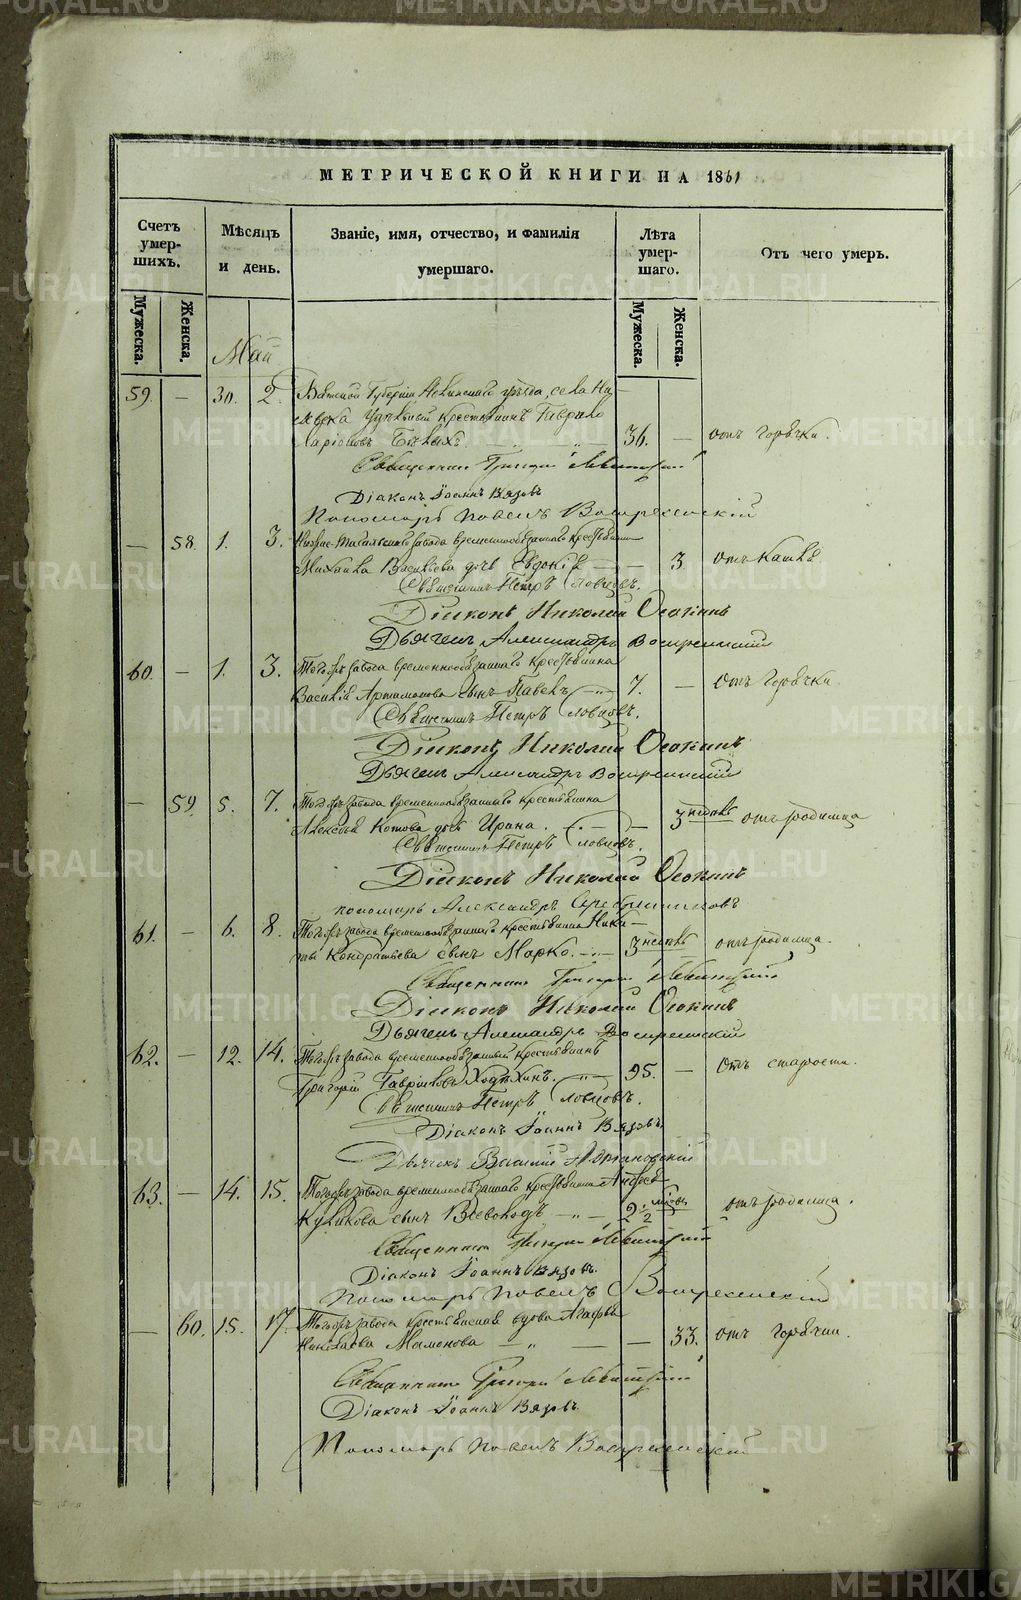 METRIKI.GASO-URAL.RU
МЕТРИЧЕСКОЙ КНИГИ НА 1861
Счетъ умерших. Мѣсяцъ и день. Званіе, имя, отчество, и фамилія умершаго. Лѣта умершаго. Отъ чего умеръ.
Мужеска. Женска. Мужеска. Женска.
Май
59. — 30. 2. Вятской Губерніи уѣзда, села
Удѣльный крестьянинъ Гаврило
36. — отъ горячки.
Священникъ Григорій Левитскій
Діаконъ Іоаннъ Вязовъ
Пономарь Павелъ Воскресенскій
— 58. 1. 3. Нижне-Тагильскаго завода временнообязаннаго крестьянина
Михайла Васильева дочь Евдокія — 3 отъ Кашля
Священникъ Петръ Словцовъ.
Діаконъ Николай Осокинъ
Дьячекъ Александръ Воскресенскій
60. — 1. 3. Тогожъ завода временнообязаннаго крестьянина
Василія Артамонова сынъ Павелъ 7. — отъ Горячки
Священникъ Петръ Словцовъ.
Діаконъ Николай Осокинъ
Дьячекъ Александръ Воскресенскій
— 59. 5. 7. Тогожъ завода временнообязаннаго крестьянина
Алексѣя Котова дочь Ирина. — 3 недѣль отъ родимца
Священникъ Петръ Словцовъ.
Діаконъ Николай Осокинъ
пономарь Александръ Серебренниковъ
61. — 6. 8. Тогожъ завода временнообязаннаго крестьянина Ники-
ты Кондратьева сынъ Марко. 3 недѣль отъ родимца.
Священникъ Григорій Левитскій
Діаконъ Николай Осокинъ
Дьячекъ Александръ Воскресенскій
62. — 12. 14. Тогожъ завода временнообязанный крестьянинъ
Григорій Гавриловъ 95. — Отъ старости.
Священникъ Петръ Словцовъ.
Діаконъ Іоаннъ Вязовъ
Дьячекъ Василій
63. — 14. 15. Тогожъ завода временнообязаннаго крестьянина Андрея
Куликова сынъ Всеволодъ — 2 1/2 мѣсяц отъ родимца.
Священникъ Григорій Левитскій
Діаконъ Іоаннъ Вязовъ.
Пономарь Павелъ Воскресенскій
— 60. 15. 17. Тогожъ завода крестьянская вдова Агафья
Николаева Мамонова — — 33. отъ горячки.
Священникъ Григорій Левитскій
Діаконъ Іоаннъ Вязовъ.
Пономарь Павелъ Воскресенскій